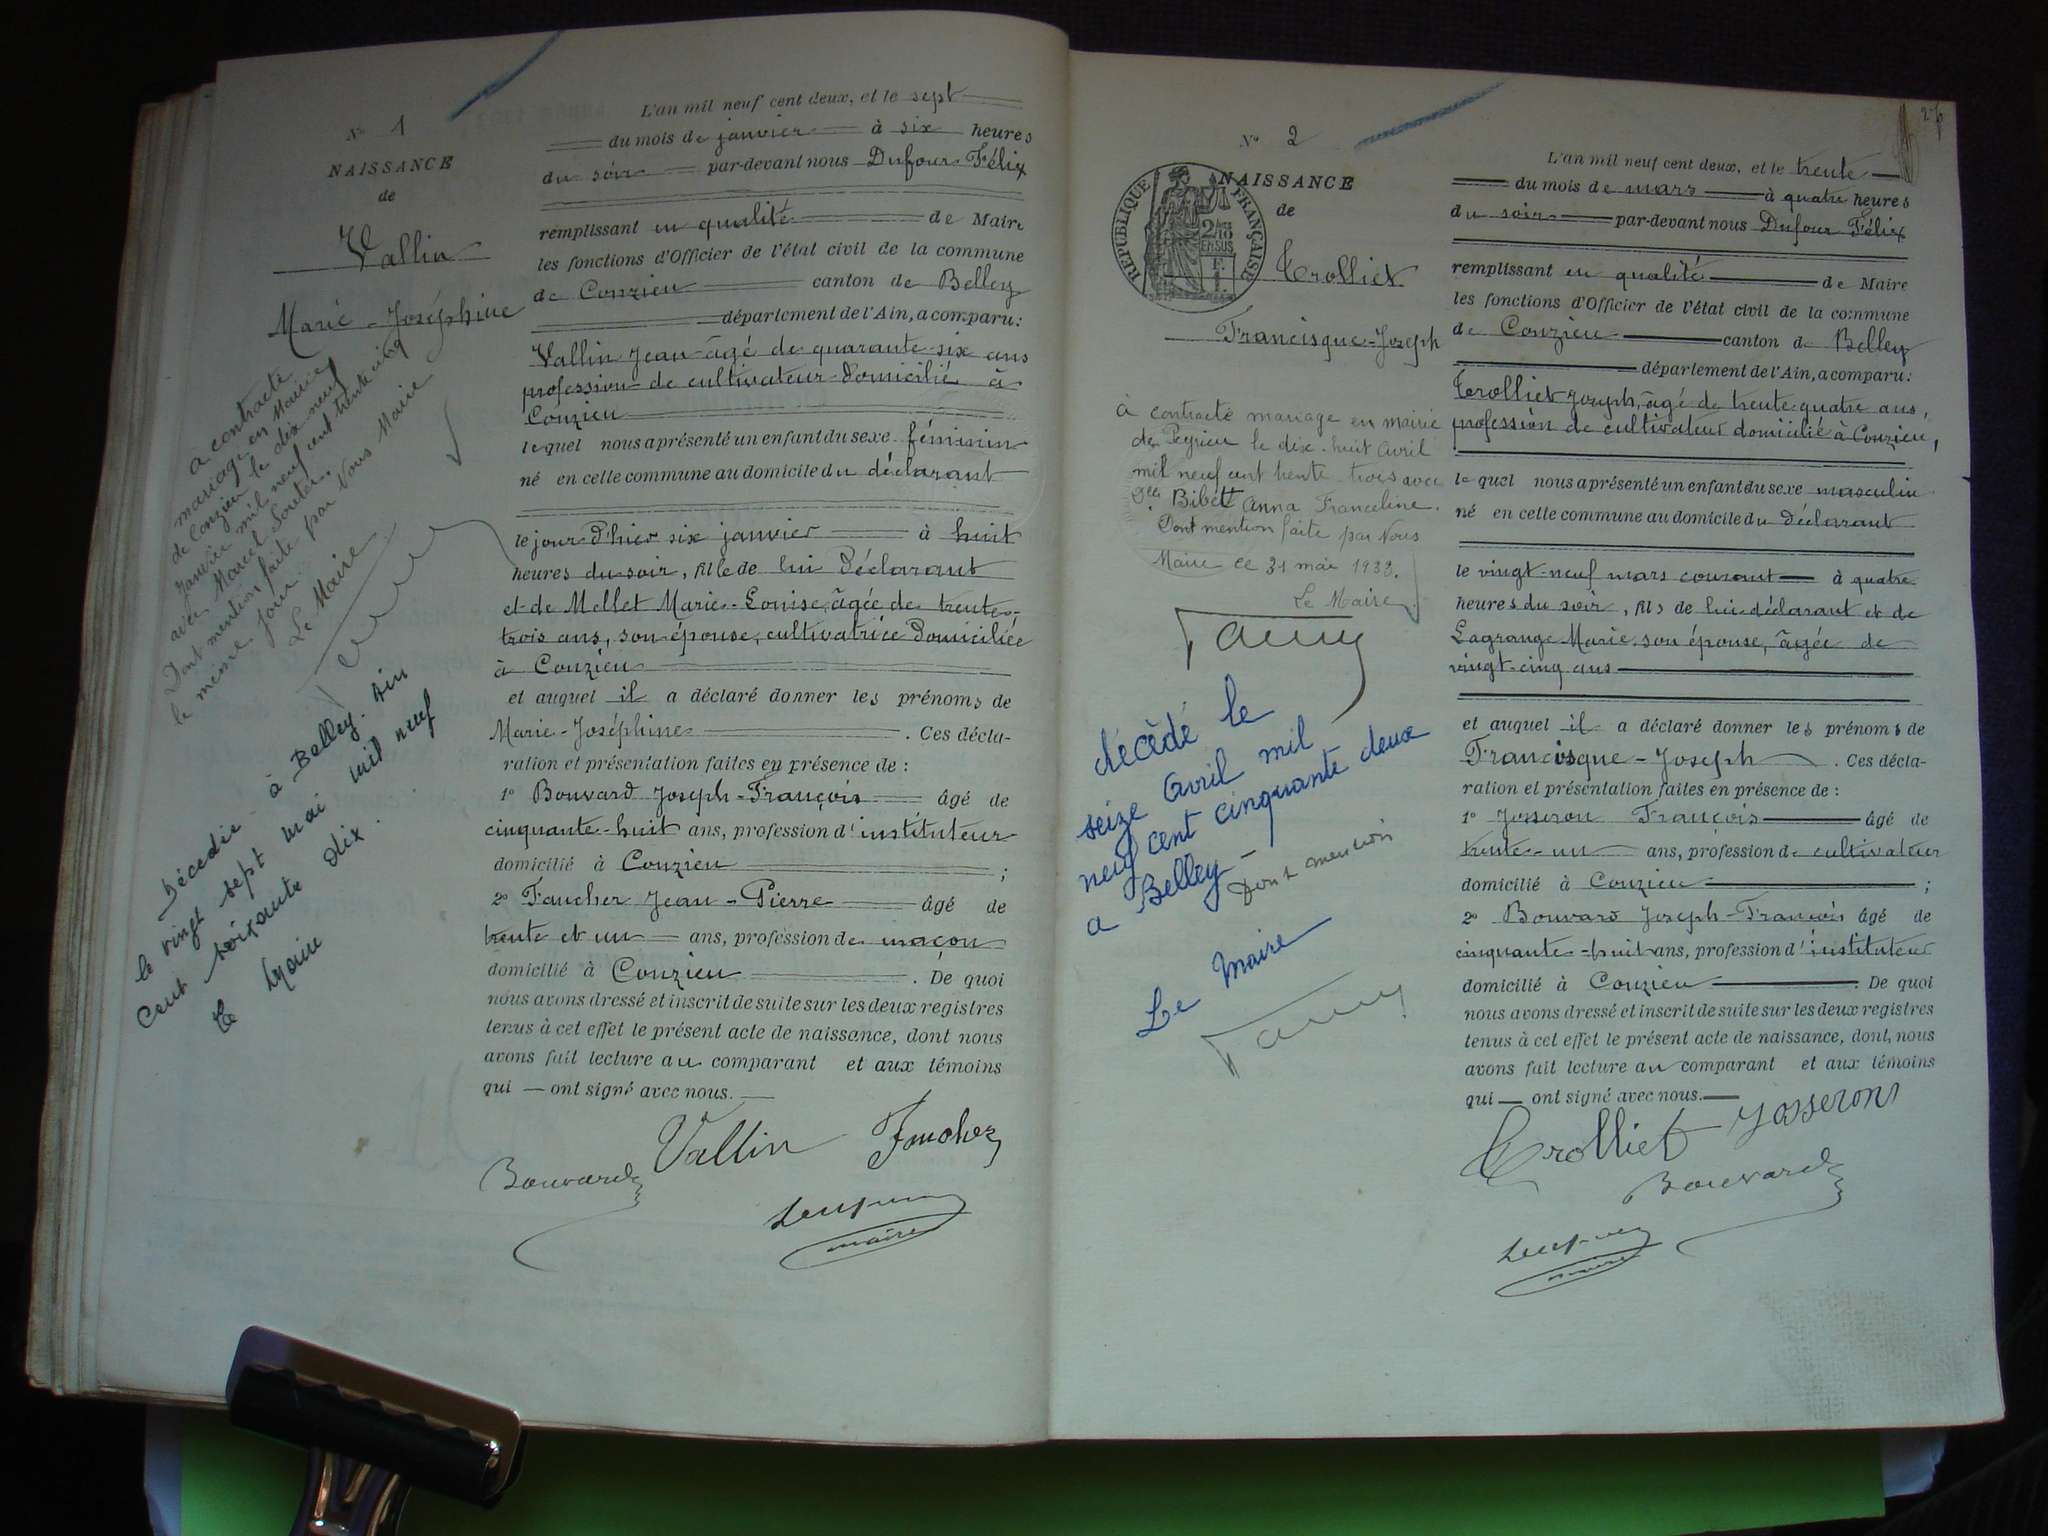 N° 1
NAISSANCE
de
Vallin
Marie-Joséphine
a contracté
mariage en Mairie
de Conzieu le dix neuf
Janvier mil neuf cent trente cinq
avec Marcel
Dont mention faite par Nous Maire
le même jour.
Le Maire
Décédée à Belley. Ain
le vingt sept mai mil neuf
cent soixante dix.
Le Maire
L'an mil neuf cent deux, et le sept
du mois de janvier à six heures
du soir par-devant nous Dufour Félix
remplissant en qualité de Maire
les fonctions d'Officier de l'état civil de la commune
de Conzieu canton de Belley
département de l'Ain, a comparu:
Vallin Jean âgé de quarante-six ans
profession de cultivateur domicilié à
Conzieu
lequel nous a présenté un enfant du sexe féminin
né en cette commune au domicile du déclarant
le jour d'hier six janvier à huit
heures du soir, fille de lui Déclarant
et de Mellet Marie-Louise, âgée de trente-
trois ans, son épouse, cultivatrice domiciliée
à Conzieu
et auquel il a déclaré donner les prénoms de
Marie-Joséphine. Ces décla-
ration et présentation faites en présence de :
1° Bouvard Joseph-François âgé de
cinquante-huit ans, profession d'instituteur
domicilié à Conzieu ;
2° Faucher Jean-Pierre âgé de
trente et un ans, profession de maçon
domicilié à Conzieu. De quoi
nous avons dressé et inscrit de suite sur les deux registres
tenus à cet effet le présent acte de naissance, dont nous
avons fait lecture au comparant et aux témoins
qui — ont signé avec nous. —
Bouvard Vallin Faucher
maire
27
N° 2
NAISSANCE
de
RÉPUBLIQUE FRANÇAISE
Trolliet
Francisque-Joseph
à contracté mariage en mairie
de Peyrieu le dix-huit Avril
mil neuf cent trente trois avec
Bibet Anna Franceline.
Dont mention faite par Nous
Maire ce 31 mai 1933.
Le Maire
décédé le
seize Avril mil
neuf cent cinquante deux
a Belley -
Dont mention
Le Maire
L'an mil neuf cent deux, et le trente
du mois de mars à quatre heures
du soir par-devant nous Dufour Félix
remplissant en qualité de Maire
les fonctions d'Officier de l'état civil de la commune
de Conzieu canton de Belley
département de l'Ain, a comparu:
Trolliet Joseph, âgé de trente-quatre ans,
profession de cultivateur domicilié à Conzieu,
lequel nous a présenté un enfant du sexe masculin
né en cette commune au domicile du Déclarant
le vingt-neuf mars courant à quatre
heures du soir, fils de lui déclarant et de
Lagrange Marie son épouse, âgée de
vingt-cinq ans
et auquel il a déclaré donner les prénoms de
Francisque-Joseph. Ces décla-
ration et présentation faites en présence de :
1° Josseron François âgé de
trente-un ans, profession de cultivateur
domicilié à Conzieu ;
2° Bouvard Joseph-François âgé de
cinquante-huit ans, profession d'instituteur
domicilié à Conzieu. De quoi
nous avons dressé et inscrit de suite sur les deux registres
tenus à cet effet le présent acte de naissance, dont, nous
avons fait lecture au comparant et aux témoins
qui — ont signé avec nous. —
Trolliet Josseron
Bouvard